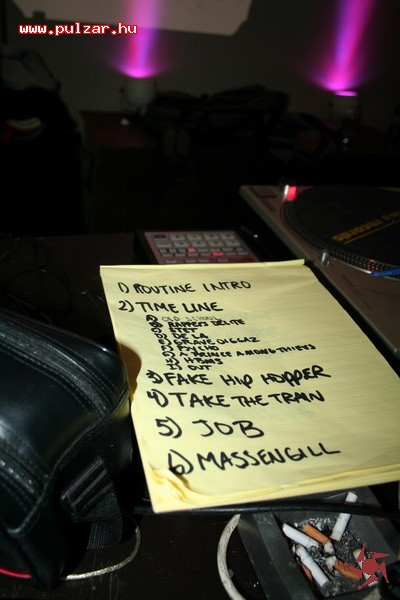 www.pulzar.hu
1) ROUTINE INTRO
2) TIME LINE
A) OLD SCHOOL
B) RAPPERS DELITE
C) STET
D) DE LA
E) GRAVE DIGGAZ
F) PSYCHO
G) A PRINCE AMONG THIEVES
H) HBMS
I) OUT
3) FAKE HIP HOPPER
4) TAKE THE TRAIN
5) JOB
6) MASSENGILL